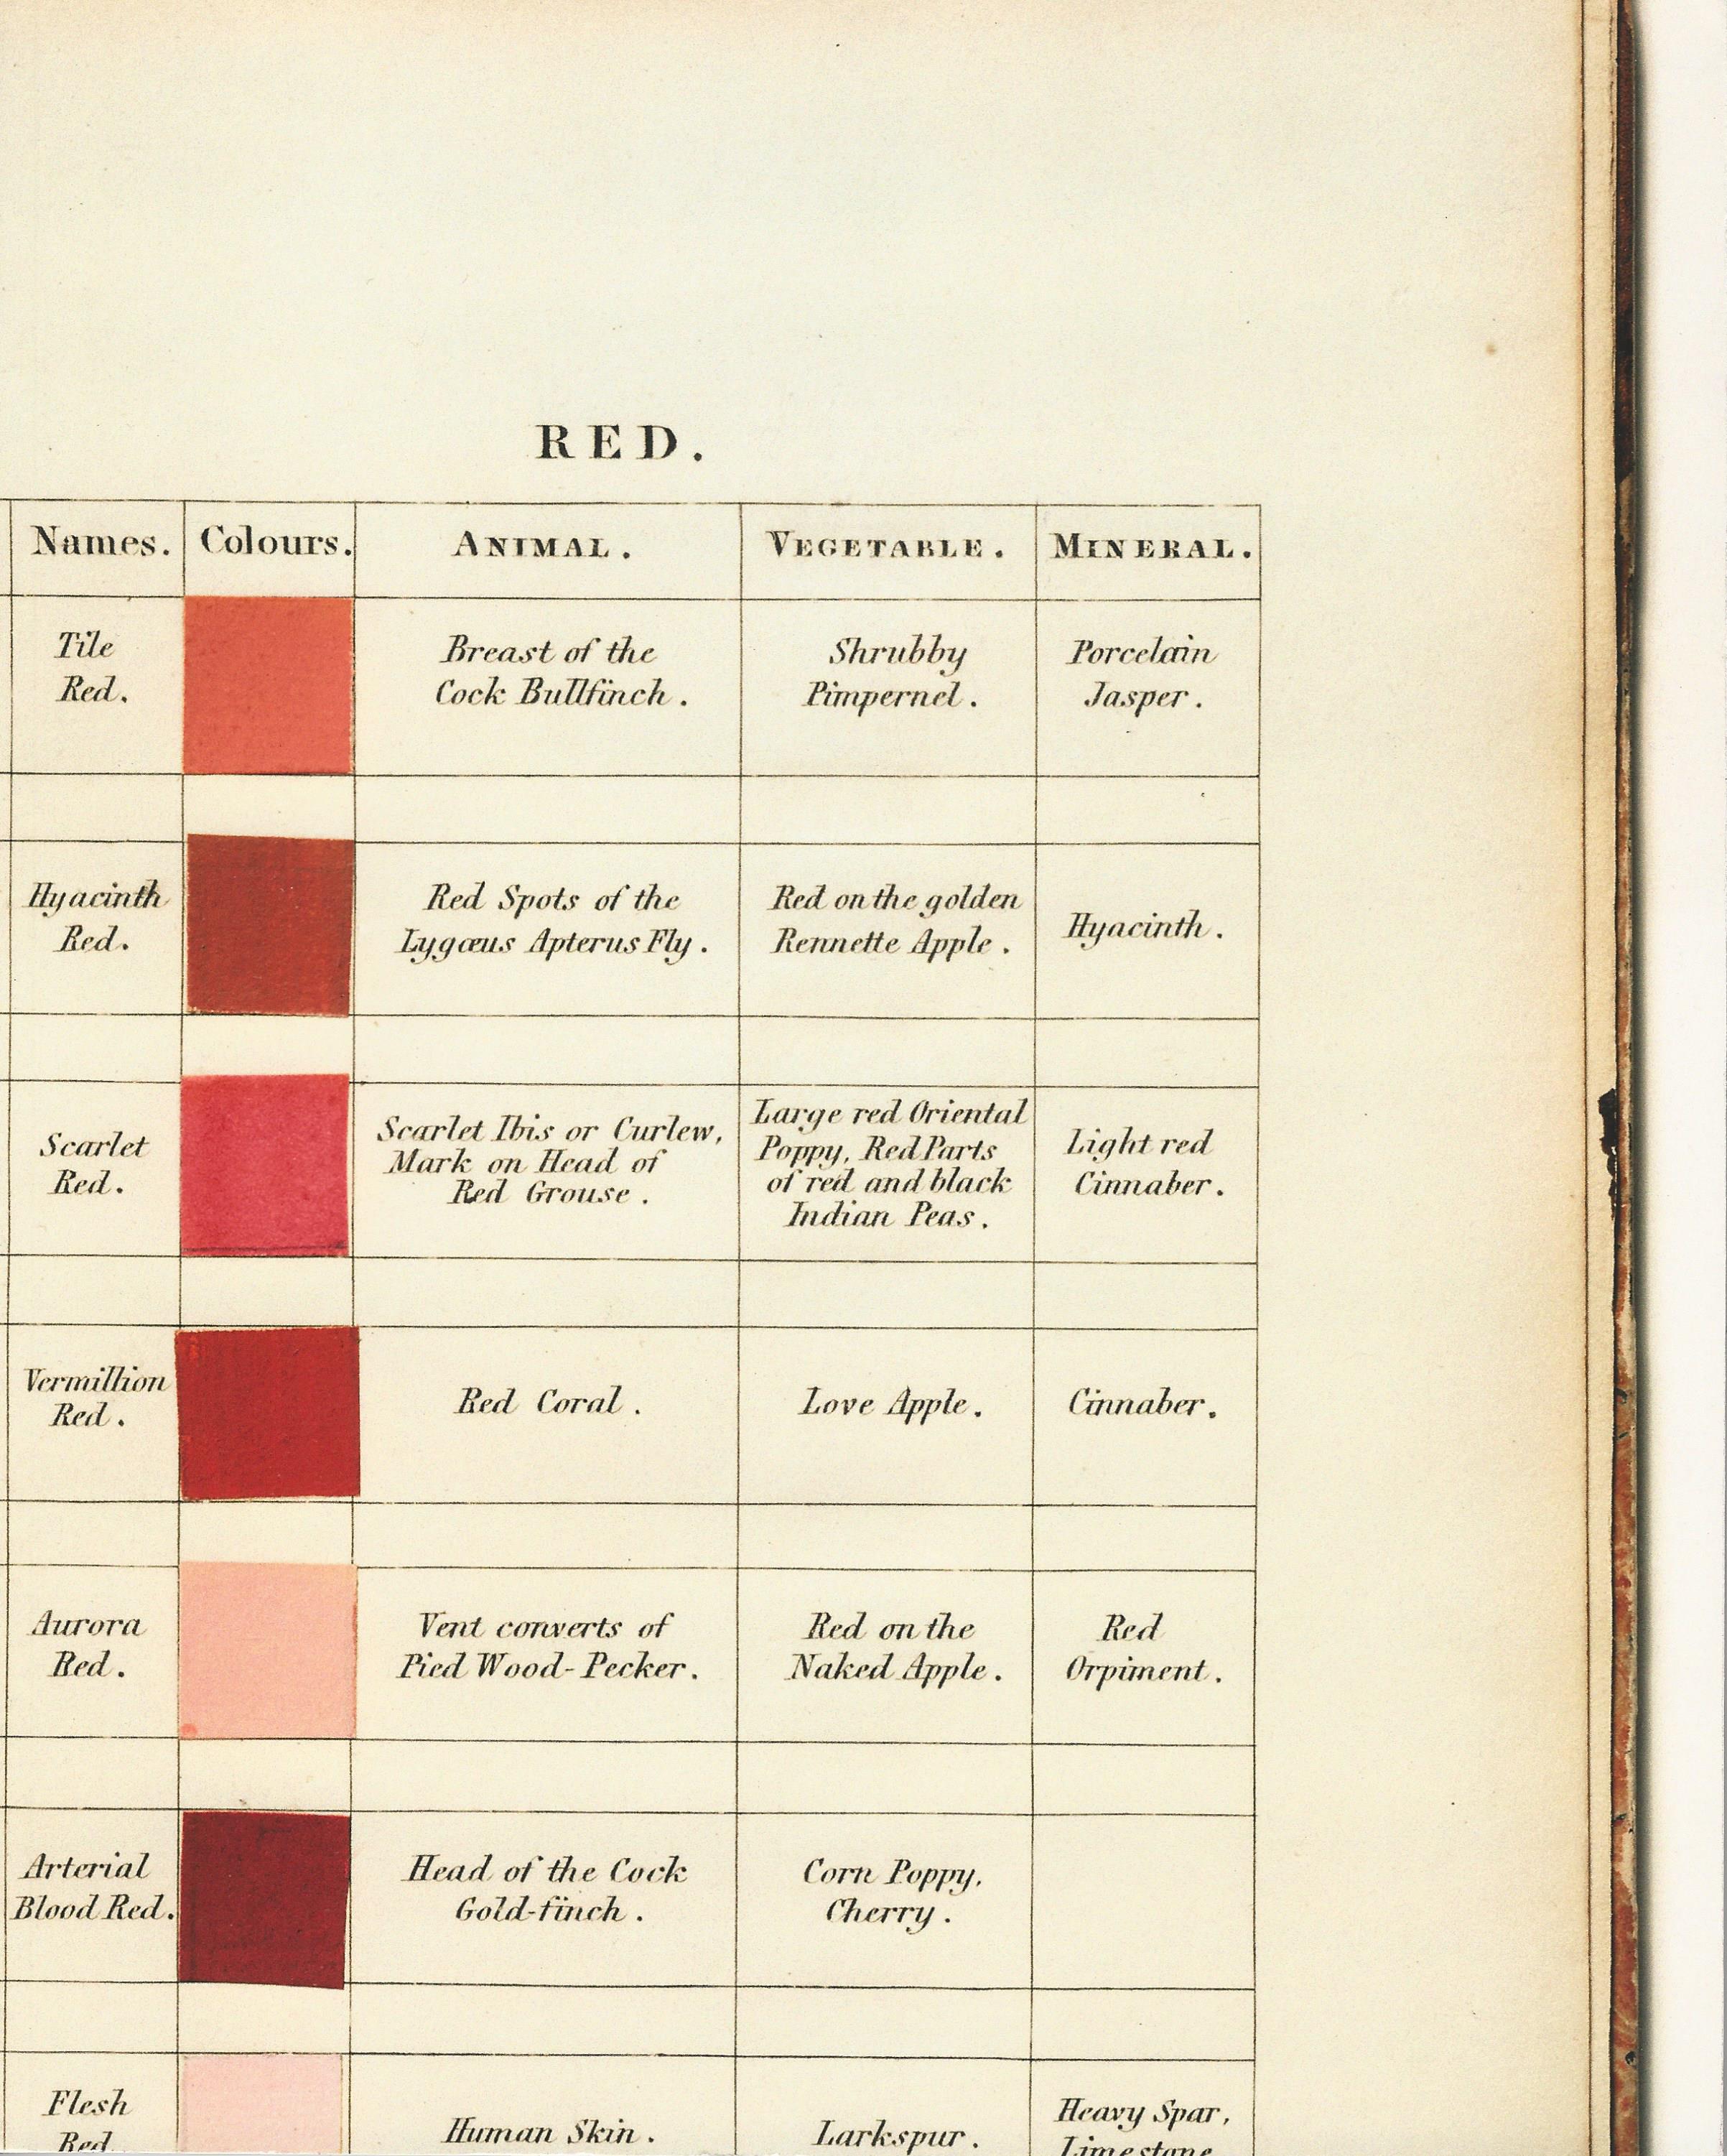 RED.
Names. Colours. ANIMAL. VEGETABLE. MINERAL.
Tile
Red.
Breast of the
Cock Bullfinch.
Shrubby
Pimpernel.
Porcelain
Jasper.
Hyacinth
Red.
Red Spots of the
Lygæus Apterus Fly.
Red on the golden
Rennette Apple.
Hyacinth.
Scarlet
Red.
Scarlet Ibis or Curlew,
Mark on Head of
Red Grouse.
Large red Oriental
Poppy, Red Parts
of red and black
Indian Peas.
Light red
Cinnaber.
Vermillion
Red.
Red Coral.
Love Apple.
Cinnaber.
Aurora
Red.
Vent converts of
Pied Wood-Pecker.
Red on the
Naked Apple.
Red
Orpiment.
Arterial
Blood Red.
Head of the Cock
Gold-finch.
Corn Poppy,
Cherry.
Flesh
Red.
Human Skin.
Larkspur.
Heavy Spar,
Limestone